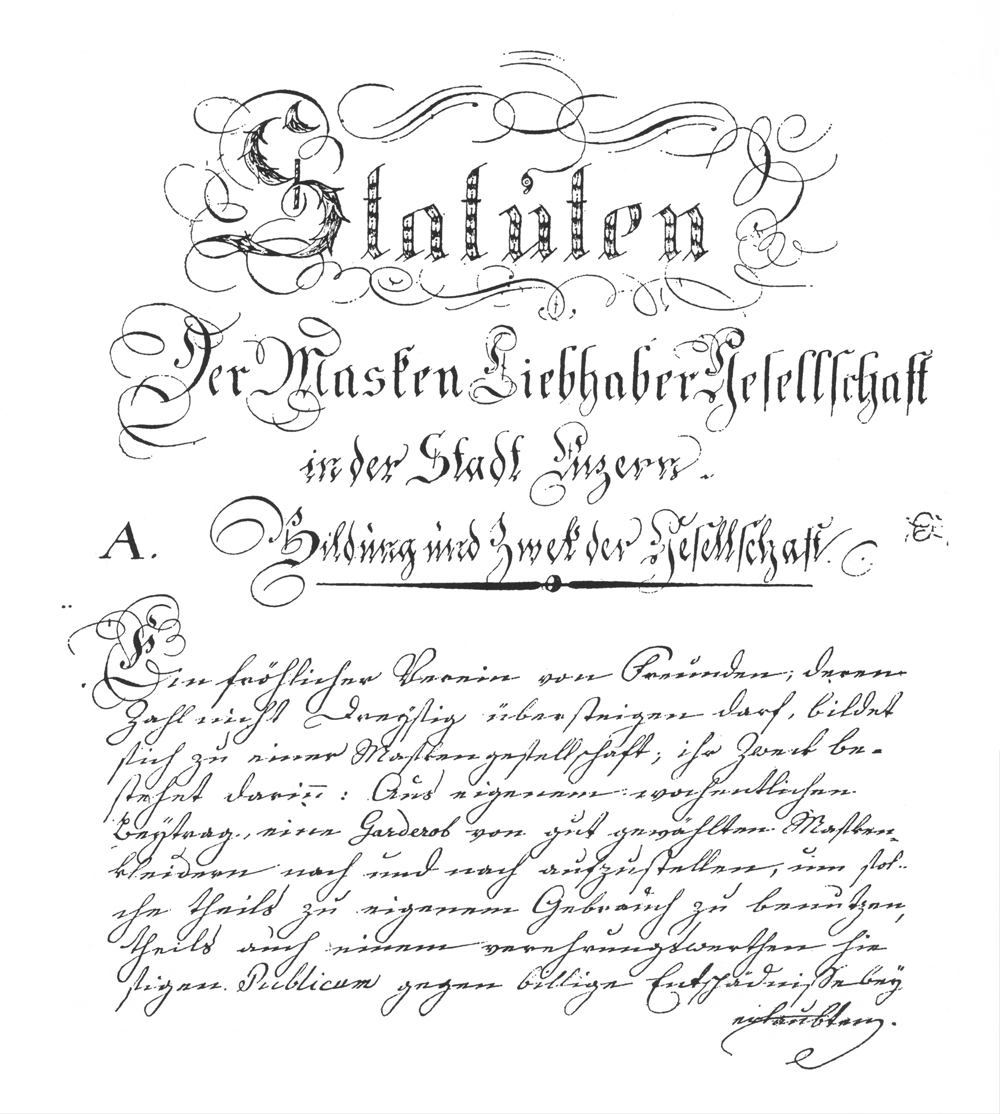 Statuten
Der Masken Liebhaber Gesellschaft
in der Stadt Luzern.
A. Bildung und Zwek der Gesellschaft.
Ein fröhlicher Verein von Freunden; deren
Zahl nicht Dreÿsig übersteigen darf, bildet
sich zu einer Maskengesellschaft; ihr Zweck be=
stehet darin̅: Aus eigenem wochentlichen
Beÿtrag, eine Garderob von gut gewählten Masken=
kleidern nach und nach aufzustellen, um sol=
che theils zu eigenem Gebrauch zu benutzen,
theils auch einem verehrungswerthen hie
sigen Publicum gegen billige Entschädnisse beÿ
erlaubten.